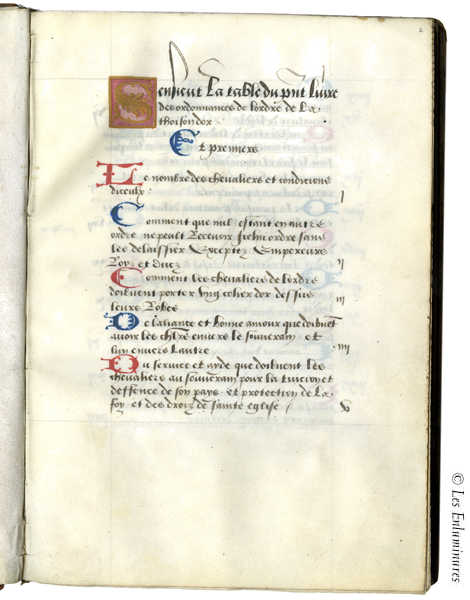 2
Ensieut La table du pnt Liure
des ordonnances de lordre de La
thoison dor
Et premiers
Le nombre des cheualiers et condicions
diceulx :
I
Comment que nul estant en autre
ordre ne peult Receuoir icelui ordre sans
lez delaissier Exceptez Empereurs
Roys et Ducz
II
Comment les cheualiers de lordre
doiuent porter vng colier dor dessus
leurs Robes
III
De laliance et bonne amour que doiuent
auoir les chlrs enuers le souuerain et
lun enuers lautre
IIII
Du seruice et ayde que doiuent les
cheualiers au souuerain pour la tuicion et
deffence de son pays et protection de La
foy et des droiz de sainte eglise
V
© Les Enluminures